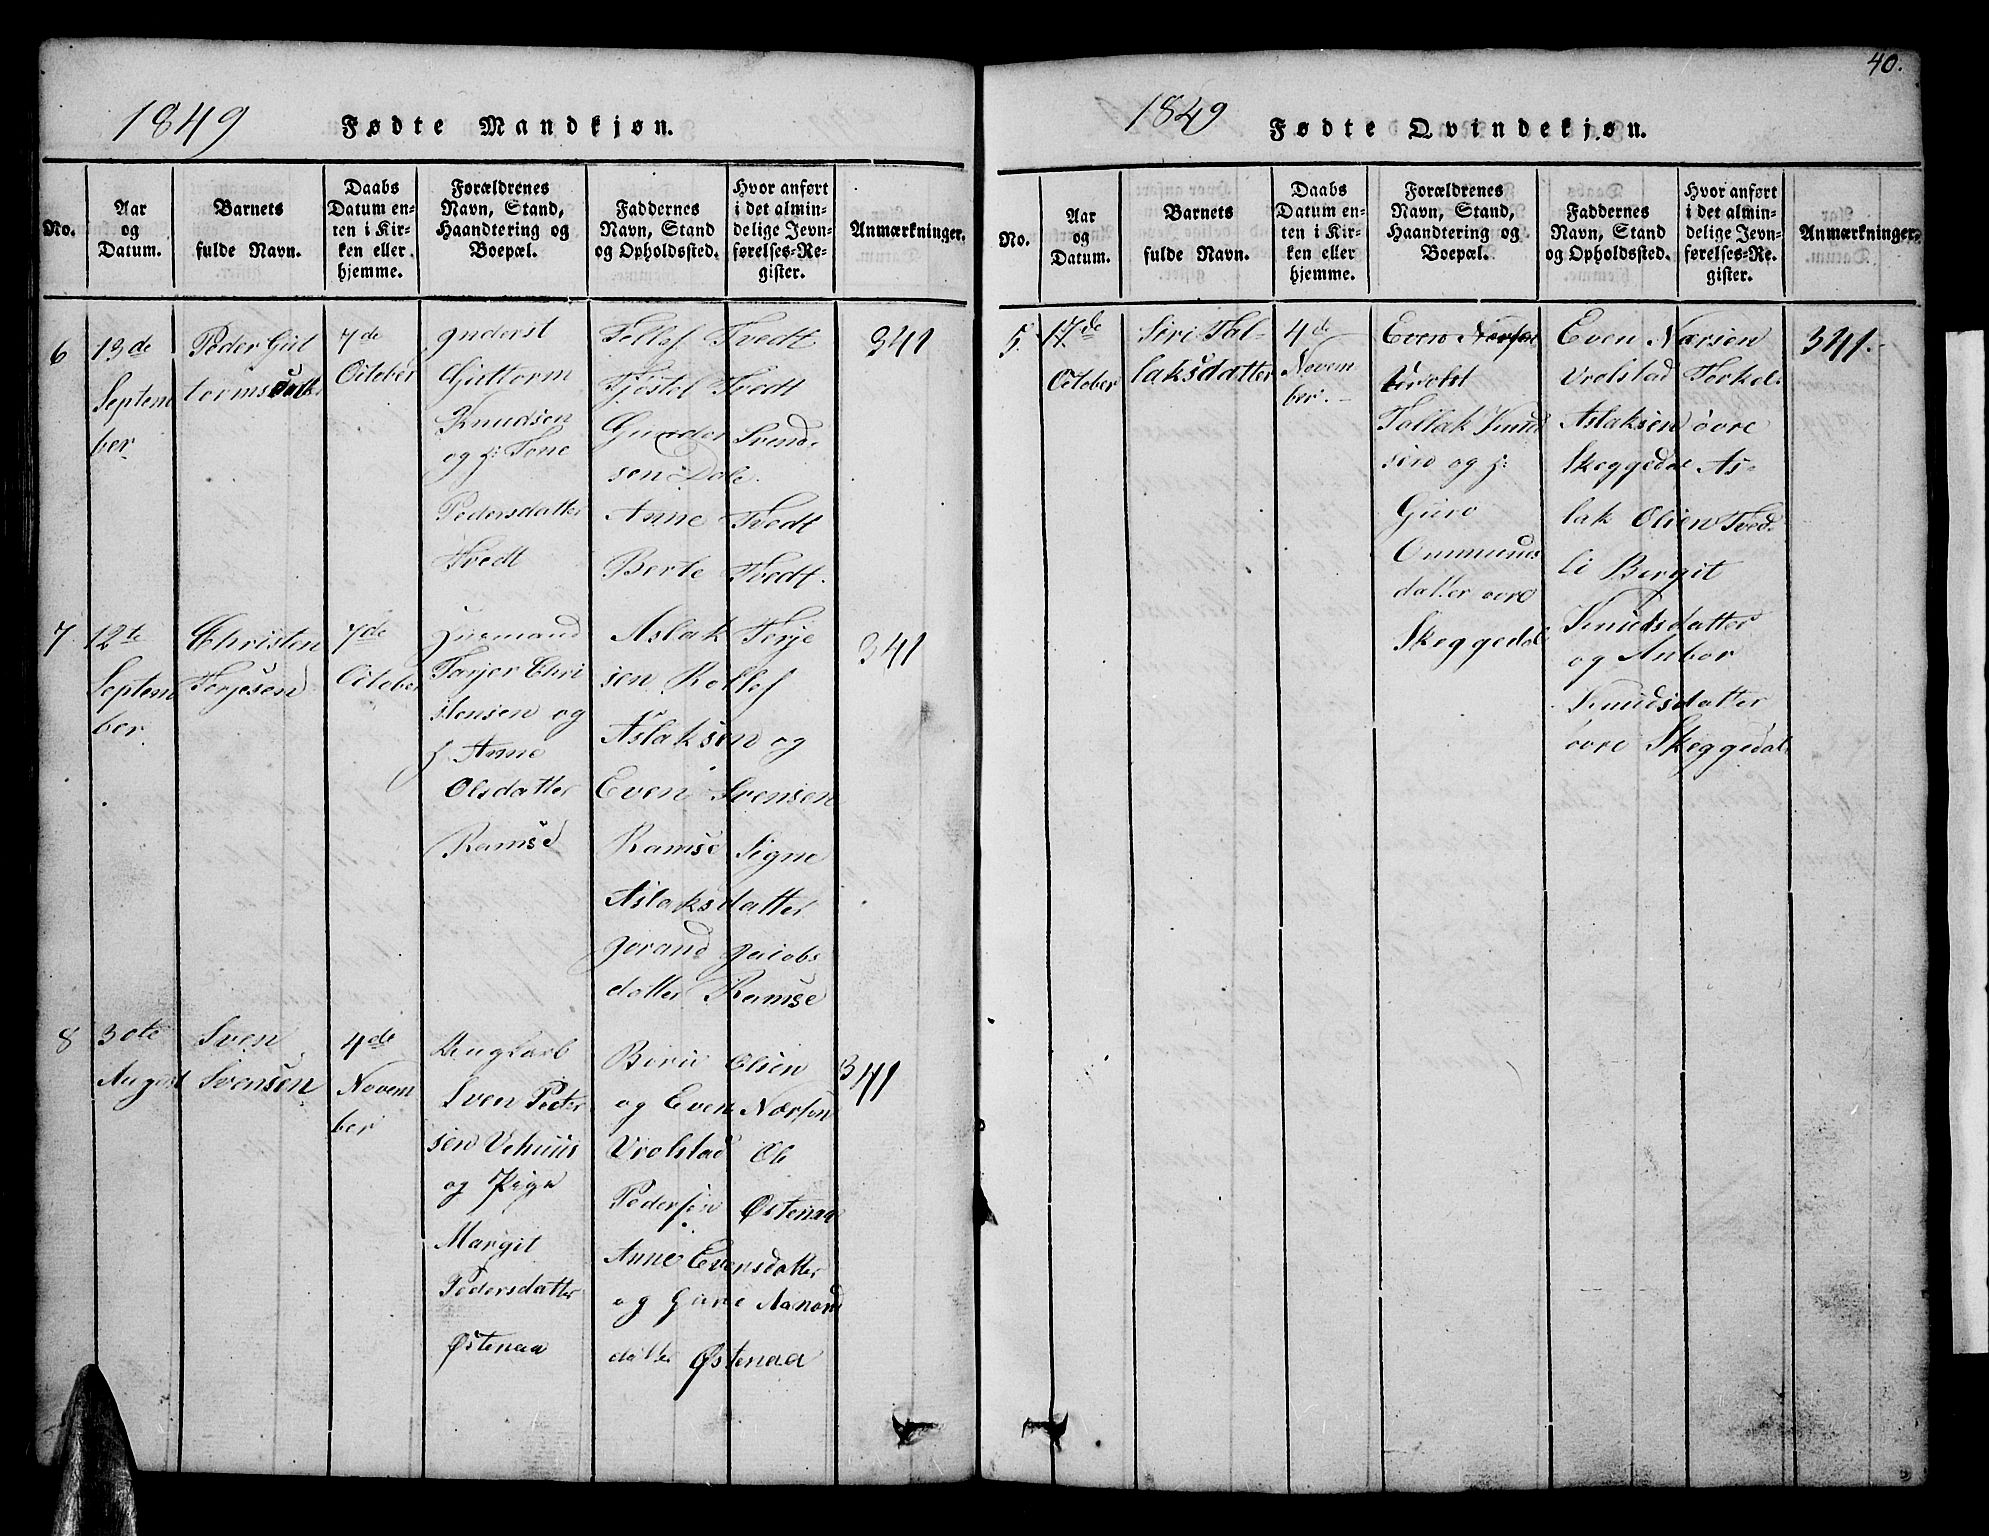 40.
1849
Fødte Mandkjøn.
No.
Aar
og
Datum.
Barnets
fulde Navn.
Daabs
Datum en-
ten i Kir-
ken eller
hjemme.
Forældrenes
Navn, Stand,
Haandtering og
Boepæl.
Faddernes
Navn, Stand
og Opholdssted.
Hvor anført
i det almin-
delige Jevn-
førelses-Re-
gister.
Anmærkninger.
6
13de
Septem
ber
Peder Gut
7de
October
Guttorm
Knudsen
og f: Tone
Pedersdatter
Tvedt
Tellef Tvedt
Tjøstel Tvedt
Gunder Svend-
sen Dale.
Anne Tvedt
Berte Tvedt.
341
7
12te
September
ber.
Christen
Terjesen
7de
October
Huusmand
Tarjer Chri
stensen og
f. Anne
Olsdatter
Ramse
Aslak Terje
sen Rollef
Aslaksen og
Even Svensen
Ramse Signe
Aslaksdatter
Jorand Jacobs
datter Ramse
341
8
30te
August
Sven
Svensen
4de
Novem
ber
Ungkarl
Sven Peder
sen Vehuus
og Pige
Margit
Pedersdatter
Østenaa
Olsen
og Even Nærsen
Vrolstad Ole
Pedersen Østenaa
Anne Evensdatter
og Gure Aanond
datter Østenaa
341
1849
Fødte Qvindekjøn.
No.
Aar
og
Datum.
Barnets
fulde Navn.
Daabs
Datum en-
ten i Kir-
ken eller
hjemme.
Forældrenes
Navn, Stand,
Haandtering og
Boepæl.
Faddernes
Navn, Stand
og Opholdssted.
Hvor anført
i det almin-
delige Jevn-
førelses-Re-
gister.
Anmærkninger.
5.
17de
October
Siri Tal-
laksdatter
4de
Novem
ber.
Even Nærsen
Vrolst
Tallak Knud
sen og f:
Guro
Ommunds
datter øvre
Skeggedal
Even Nærsen
Vrolstad Terkel
Aslaksen øvre
Skeggedal As-
lak Olsen Tved-
li Bergit
Knudsdatter
og Anbor
Knudsdatter
øvre Skeggedal
341.